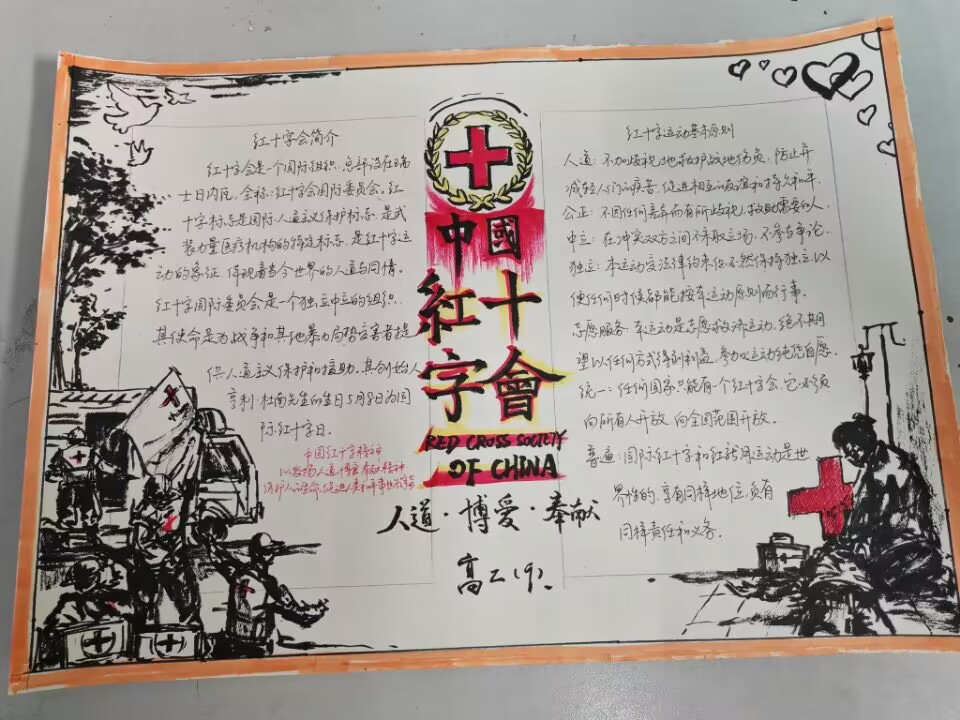 红十字会简介
红十字会是个国际组织.总部设在瑞
士日内瓦.全称:红十字会国际委员会.红
十字标志是国际人道主义保护标志、是武
装力量医疗机构的特定标志,是红十字运
动的象征.体现着当今世界的人道与同情.
红十字国际委员会是一个独立中立的组织.
其使命是为战争和其他暴力局势受害者提
供人道主义保护和援助.其创始人
亨利·杜南先生的生日5月8日为国
际红十字日.
中国红十字精神
以发扬人道博爱奉献精神
保护人的生命
中國
紅十
字會
RED CROSS SOCIETY
OF CHINA
人道·博爱·奉献
高二(9).
红十字运动基本原则
人道:不加歧视地救护战地伤员,防止并
减轻人们的疾苦,促进相互的友谊和持久和平.
公正:不因任何差异而有所歧视,救助需要的人.
中立:在冲突双方之间不采取立场,不参与争论.
独立:本运动受法律约束但必然保持独立以
便任何时侯都能按本运动原则而行事.
志愿服务:本运动是志愿救济运动,绝不期
望以任何方式得到利益,参加此运动纯洁自愿.
统一:任何国家只能有个红十字会.它必须
向所有人开放 向全国范围开放.
普遍:国际红十字和红新月运动是世
界性的.享有同样地位.负有
同样责任和义务.